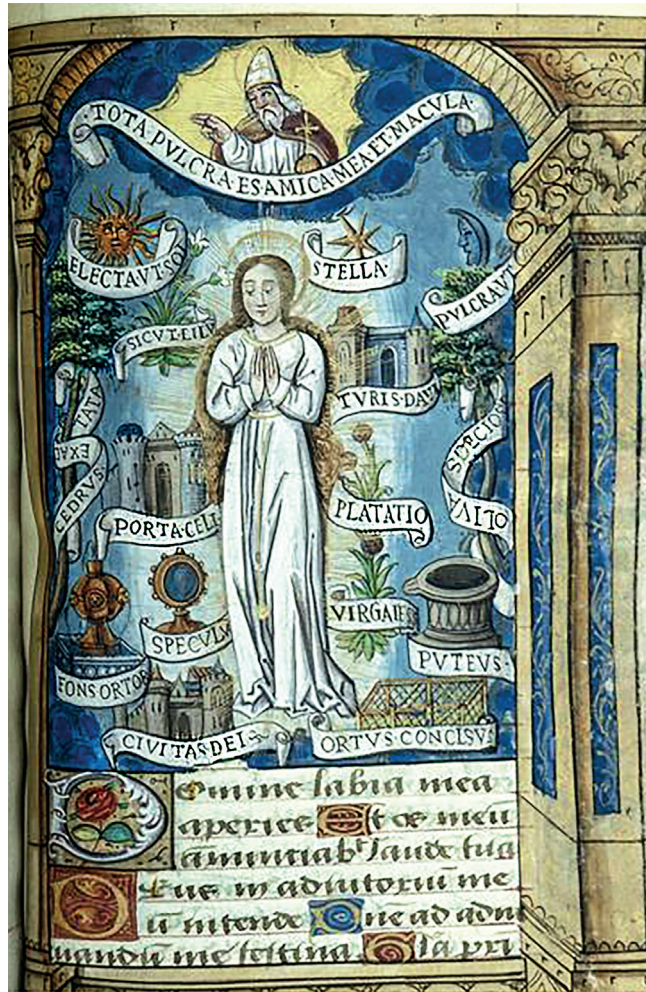 TOTA·PVLCRA·ES·AMICA·MEA·ET·MACVLA·
ELECTA·VT·SOL
STELLA·
PVLCRA·VT
SICVT·LILV
TVRIS·DAVI
CEDRVS·
EXAL
TATA
S·PECIOS
OLIVA
PORTA·CELI
PLATATIO
SPECVLV
VIRGA·IES
PVTEVS·
FONS·ORTOR
CIVITAS·DEI·
ORTVS·CONCLSVS
Domine labia mea
aperies Et os meu
anunciabt laude tua
Deus in adiutoriu me
u intende Dne ad adiu
uandu me festina Gla pri